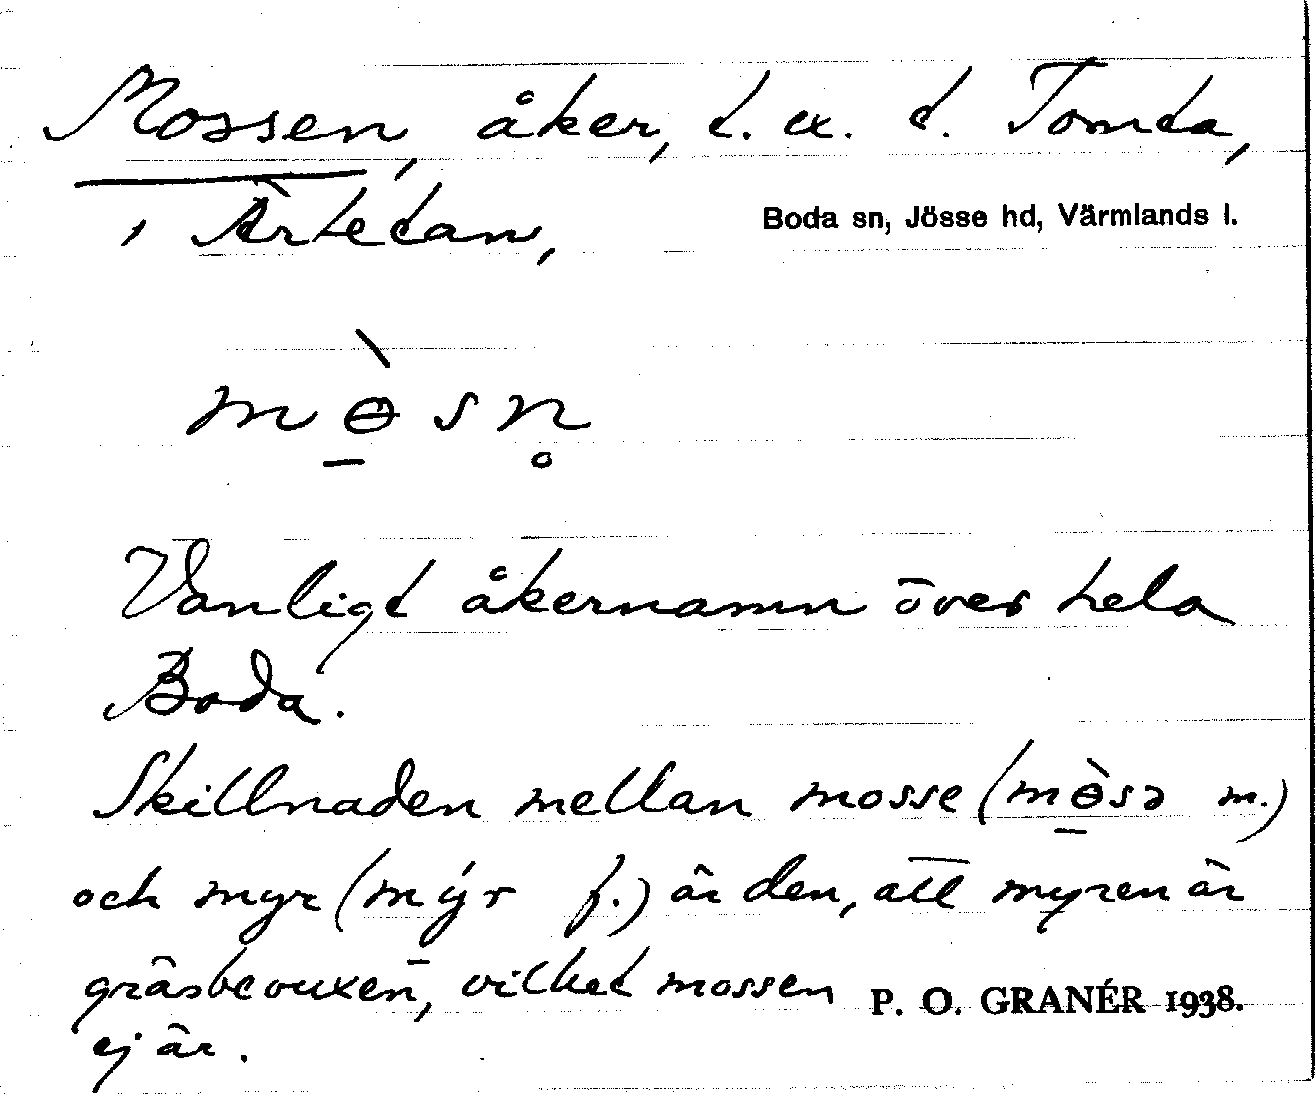 Mossen, åker, t. ex. t. Tomta,
i Ärtetan,
Boda sn, Jösse hd, Värmlands l.
mɵ̱̀sn̥
Vanligt åkernamn över hela
Boda.
Skillnaden mellan mosse (mɵ̱̀sə m.)
och myr (mýr f.) är den, att myren är
gräsbevuxen, vilket mossen
ej är.
P. O. GRANÉR 1938.